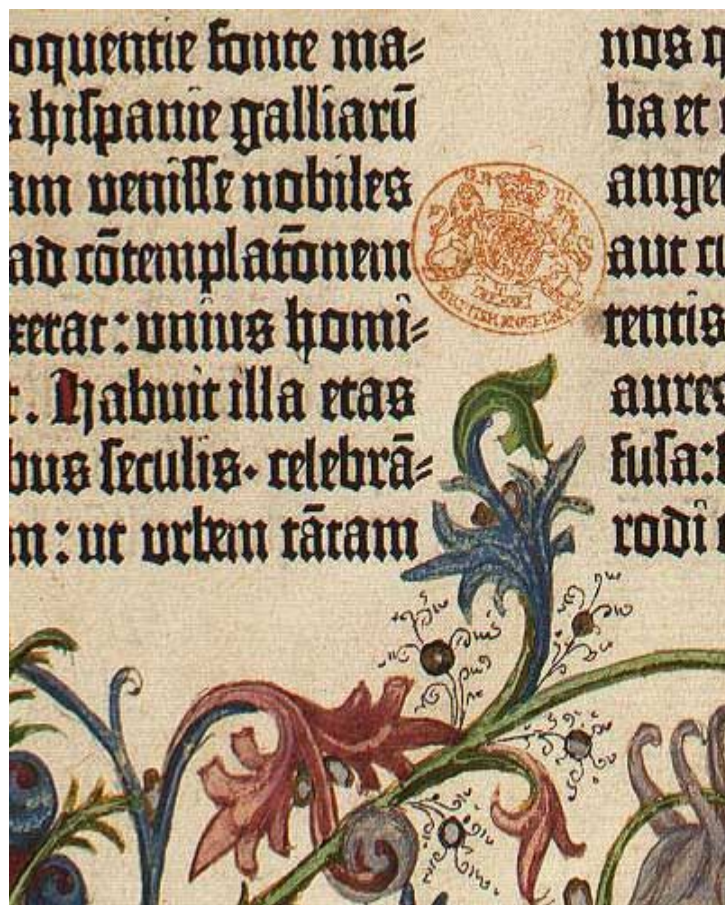 oquentie fonte ma⸗
s hiſpanie galliarū
am veniſſe nobiles
ad cōtemplatōnem
xerat: unius homi⸗
t. Habuit illa etas
bus ſeculis. celebrā⸗
m: ut urbem tātam
nos q
ba et
angel
aut cu
tentis
aures
fuſa:
rodi
BRITISH